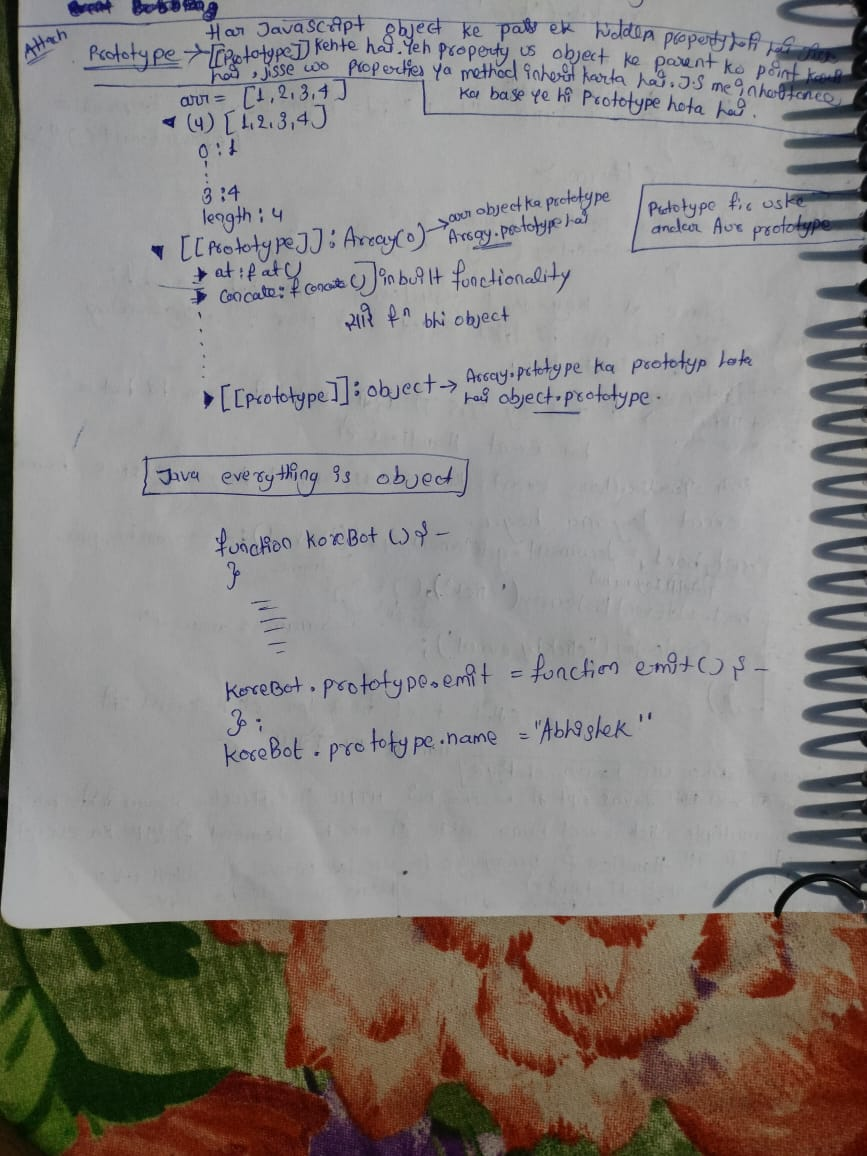 Attach
Har JavaScript object ke pass ek hidden property hoti hai
Prototype → [[Prototype]] kehte hai. Yeh property us object ke parent ko point karti
hai, jisse woo properties ya method inherit karta hai. JS me inheritance
ka base ye hi Prototype hota hai.
arr = [1,2,3,4]
(4) [1,2,3,4]
0 : 1
3 : 4
length : 4
[[Prototype]] : Array(0) → arr object ka prototype
Array.prototype hai
Prototype fir uske
andar Aur prototype
at : f at()
concate : f concate() ] inbuilt functionality
सारे fn bhi object
[[Prototype]] : object → Array.prtotype ka prototyp hota
hai object.prototype.
Java everything is object
function KoreBot () { -
}
KoreBot.prototype.emit = function emit() { -
};
KoreBot.prototype.name = "Abhishek"